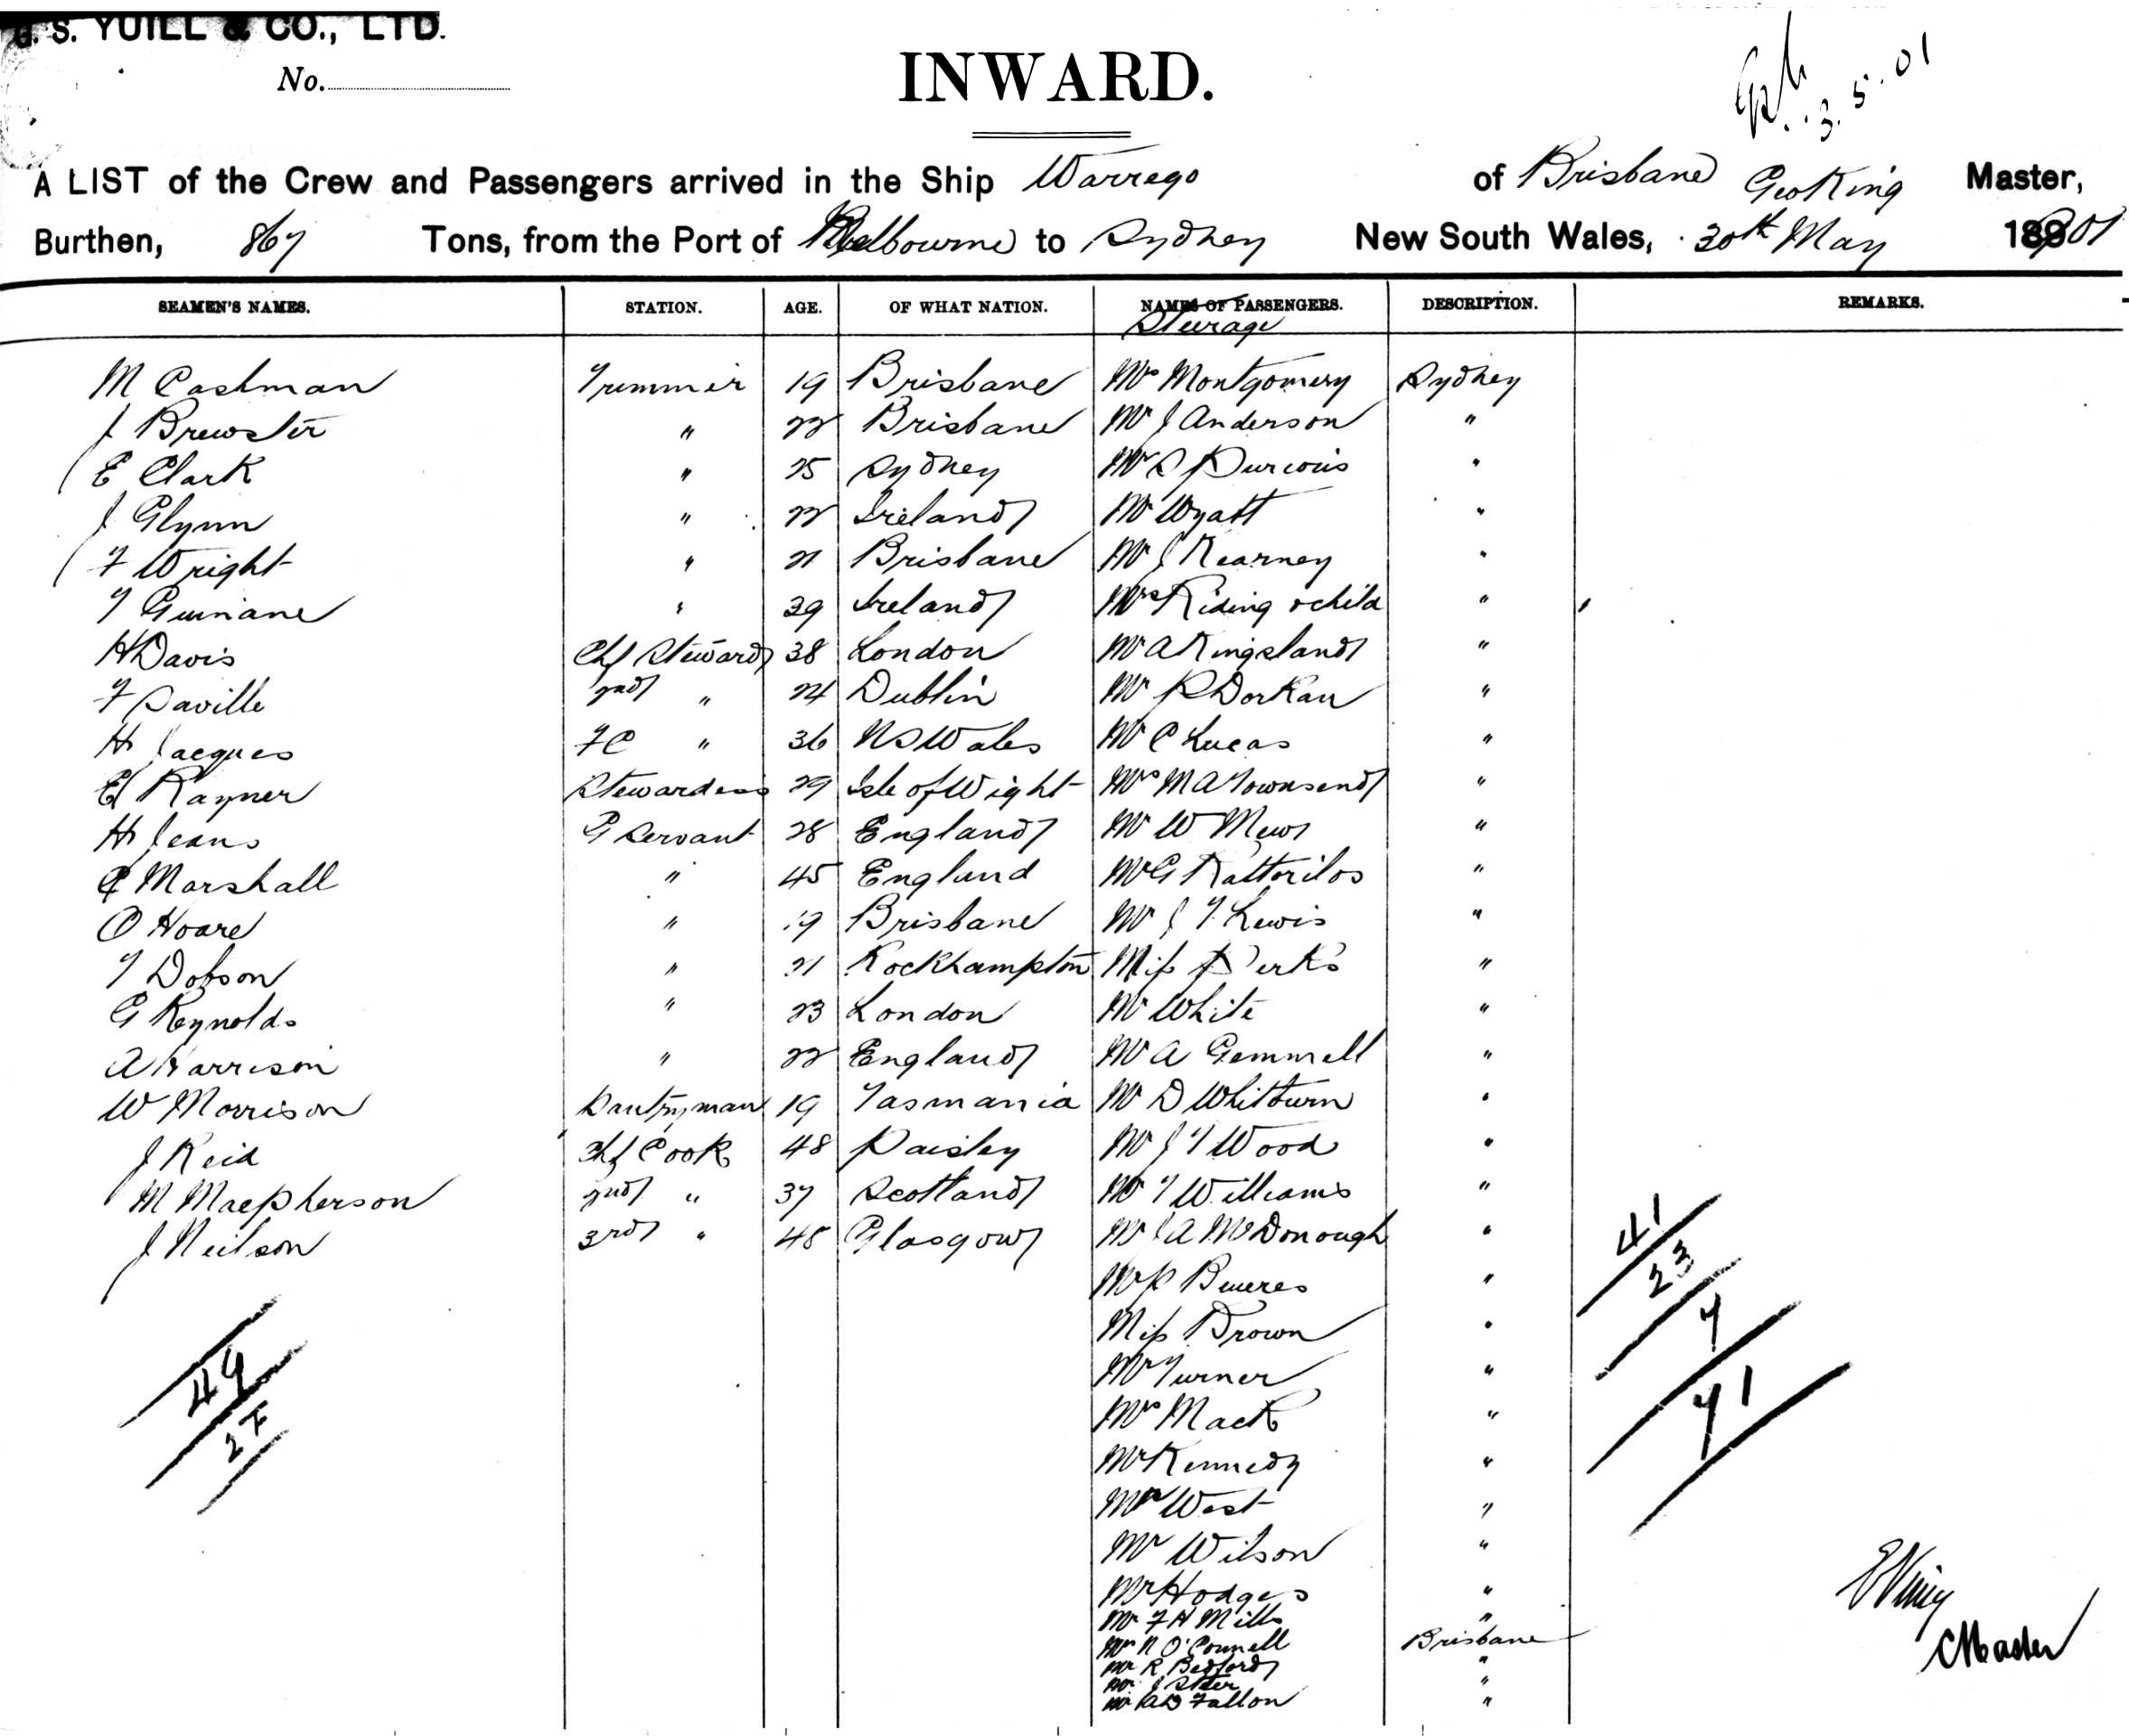 G. S. YUILL & CO., LTD.
No.
INWARD.
3.5.01
A LIST of the Crew and Passengers arrived in the Ship Warrego of Brisbane Geo King Master,
Burthen, 867 Tons, from the Port of Melbourne to Sydney New South Wales, 30th May 1901
SEAMEN'S NAMES. STATION. AGE. OF WHAT NATION. NAMES OF PASSENGERS. DESCRIPTION. REMARKS.
Steerage
M Cashman Trimmer 19 Brisbane Mrs Montgomery Sydney
J Brewster " 22 Brisbane Mr J Anderson "
E Clark " 25 Sydney Mr S "
J Glynn " 22 Ireland Mr Wyatt "
F Wright " 21 Brisbane Mr J Kearney "
T Guinane " 39 Ireland Mrs Riding & child "
H Davis Chf Steward 38 London Mr A Kingsland "
F Saville 2nd " 24 Dublin Mr P Dorkan "
H Jacques FC " 36 N S Wales Mr C Lucas "
E Rayner Stewardess 29 Isle of Wight Mrs M A Townsend "
H Jeans G Servant 28 England Mr W Mews "
Marshall " 45 England Mr G "
O Hoare " 19 Brisbane Mr J T Lewis "
T Dobson " 21 Rockhampton Miss Perks "
G Reynolds " 23 London Mr White "
A Harrison " 22 England Mr A Gemmell "
W Morrison Pantryman 19 Tasmania Mr D Whitburn "
J Reid Chf Cook 48 Paisley Mr J T Wood "
M Macpherson 2nd " 37 Scotland Mr T Williams "
J Neilson 3rd " 48 Glasgow Mr J A McDonough "
Mr P "
Miss Brown "
Mr Turner "
Mrs Mack "
Mr Kennedy "
Mr West "
Mr Wilson "
Mr Hodges "
Mr F H Mills "
Mr N O'Connell Brisbane
Mr R Bedford "
Mr J Steer "
Mr A D Fallon "
41
23
7
71
49
27
Master